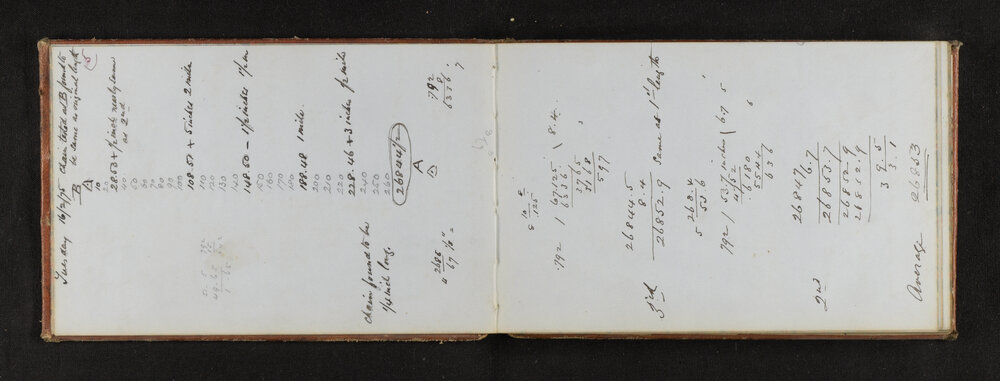 Tuesday 16/2/75 Chain tested at B found to
be same as original length
B
△
10
20
28.53 + 1/2 inch nearly same
as 2nd
40
50
60
70
80
90
100
108.57 + 5 inches 2 miles
110
120
130
140
148.50 - 1 1/2 inches 1 1/2 m
150
160
170
180
188.48 1 mile
200
210
220
228.46 + 3 inches 1/2 mile
240
250
260
26844 1/2
A
△
Chain found to be
1/4 inch long.
4 2685
67 1/10 "
792
8
6336
7
8 10
.125
.792 / 67125 \ 8.4
6336
3765
3168
597
26844.5
8.4
3rd 26852.9 Same as 1st length
5 268.4
53.6
792 / 53.7 inches \ 67
4752
6180
5544
636
26847.
6.7
2nd 26853.7
26852.9
26852.9
3 9.5
3.1
Average 26853